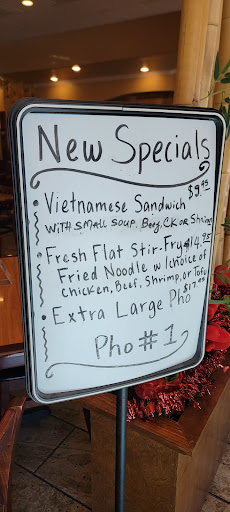 New Specials
• Vietnamese Sandwich $9.95
WITH SMALL SOUP. Beef, CK OR Shrimp
• Fresh Flat Stir-Fry $14.95
Fried Noodle w/choice of
Chicken, Beef, Shrimp, or Tofu
• Extra Large Pho $17.00
Pho #1